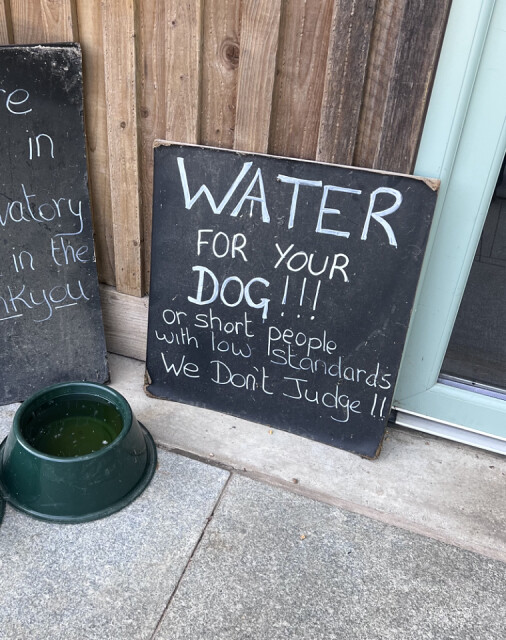 re
in
vatory
in the
nkyou
WATER
FOR YOUR
DOG!!!
or short people
with low standards
We Don't Judge !!